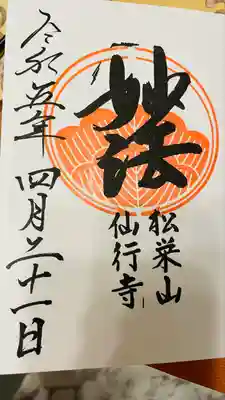 妙法
松栄山
仙行寺
令和五年 四月二十一日